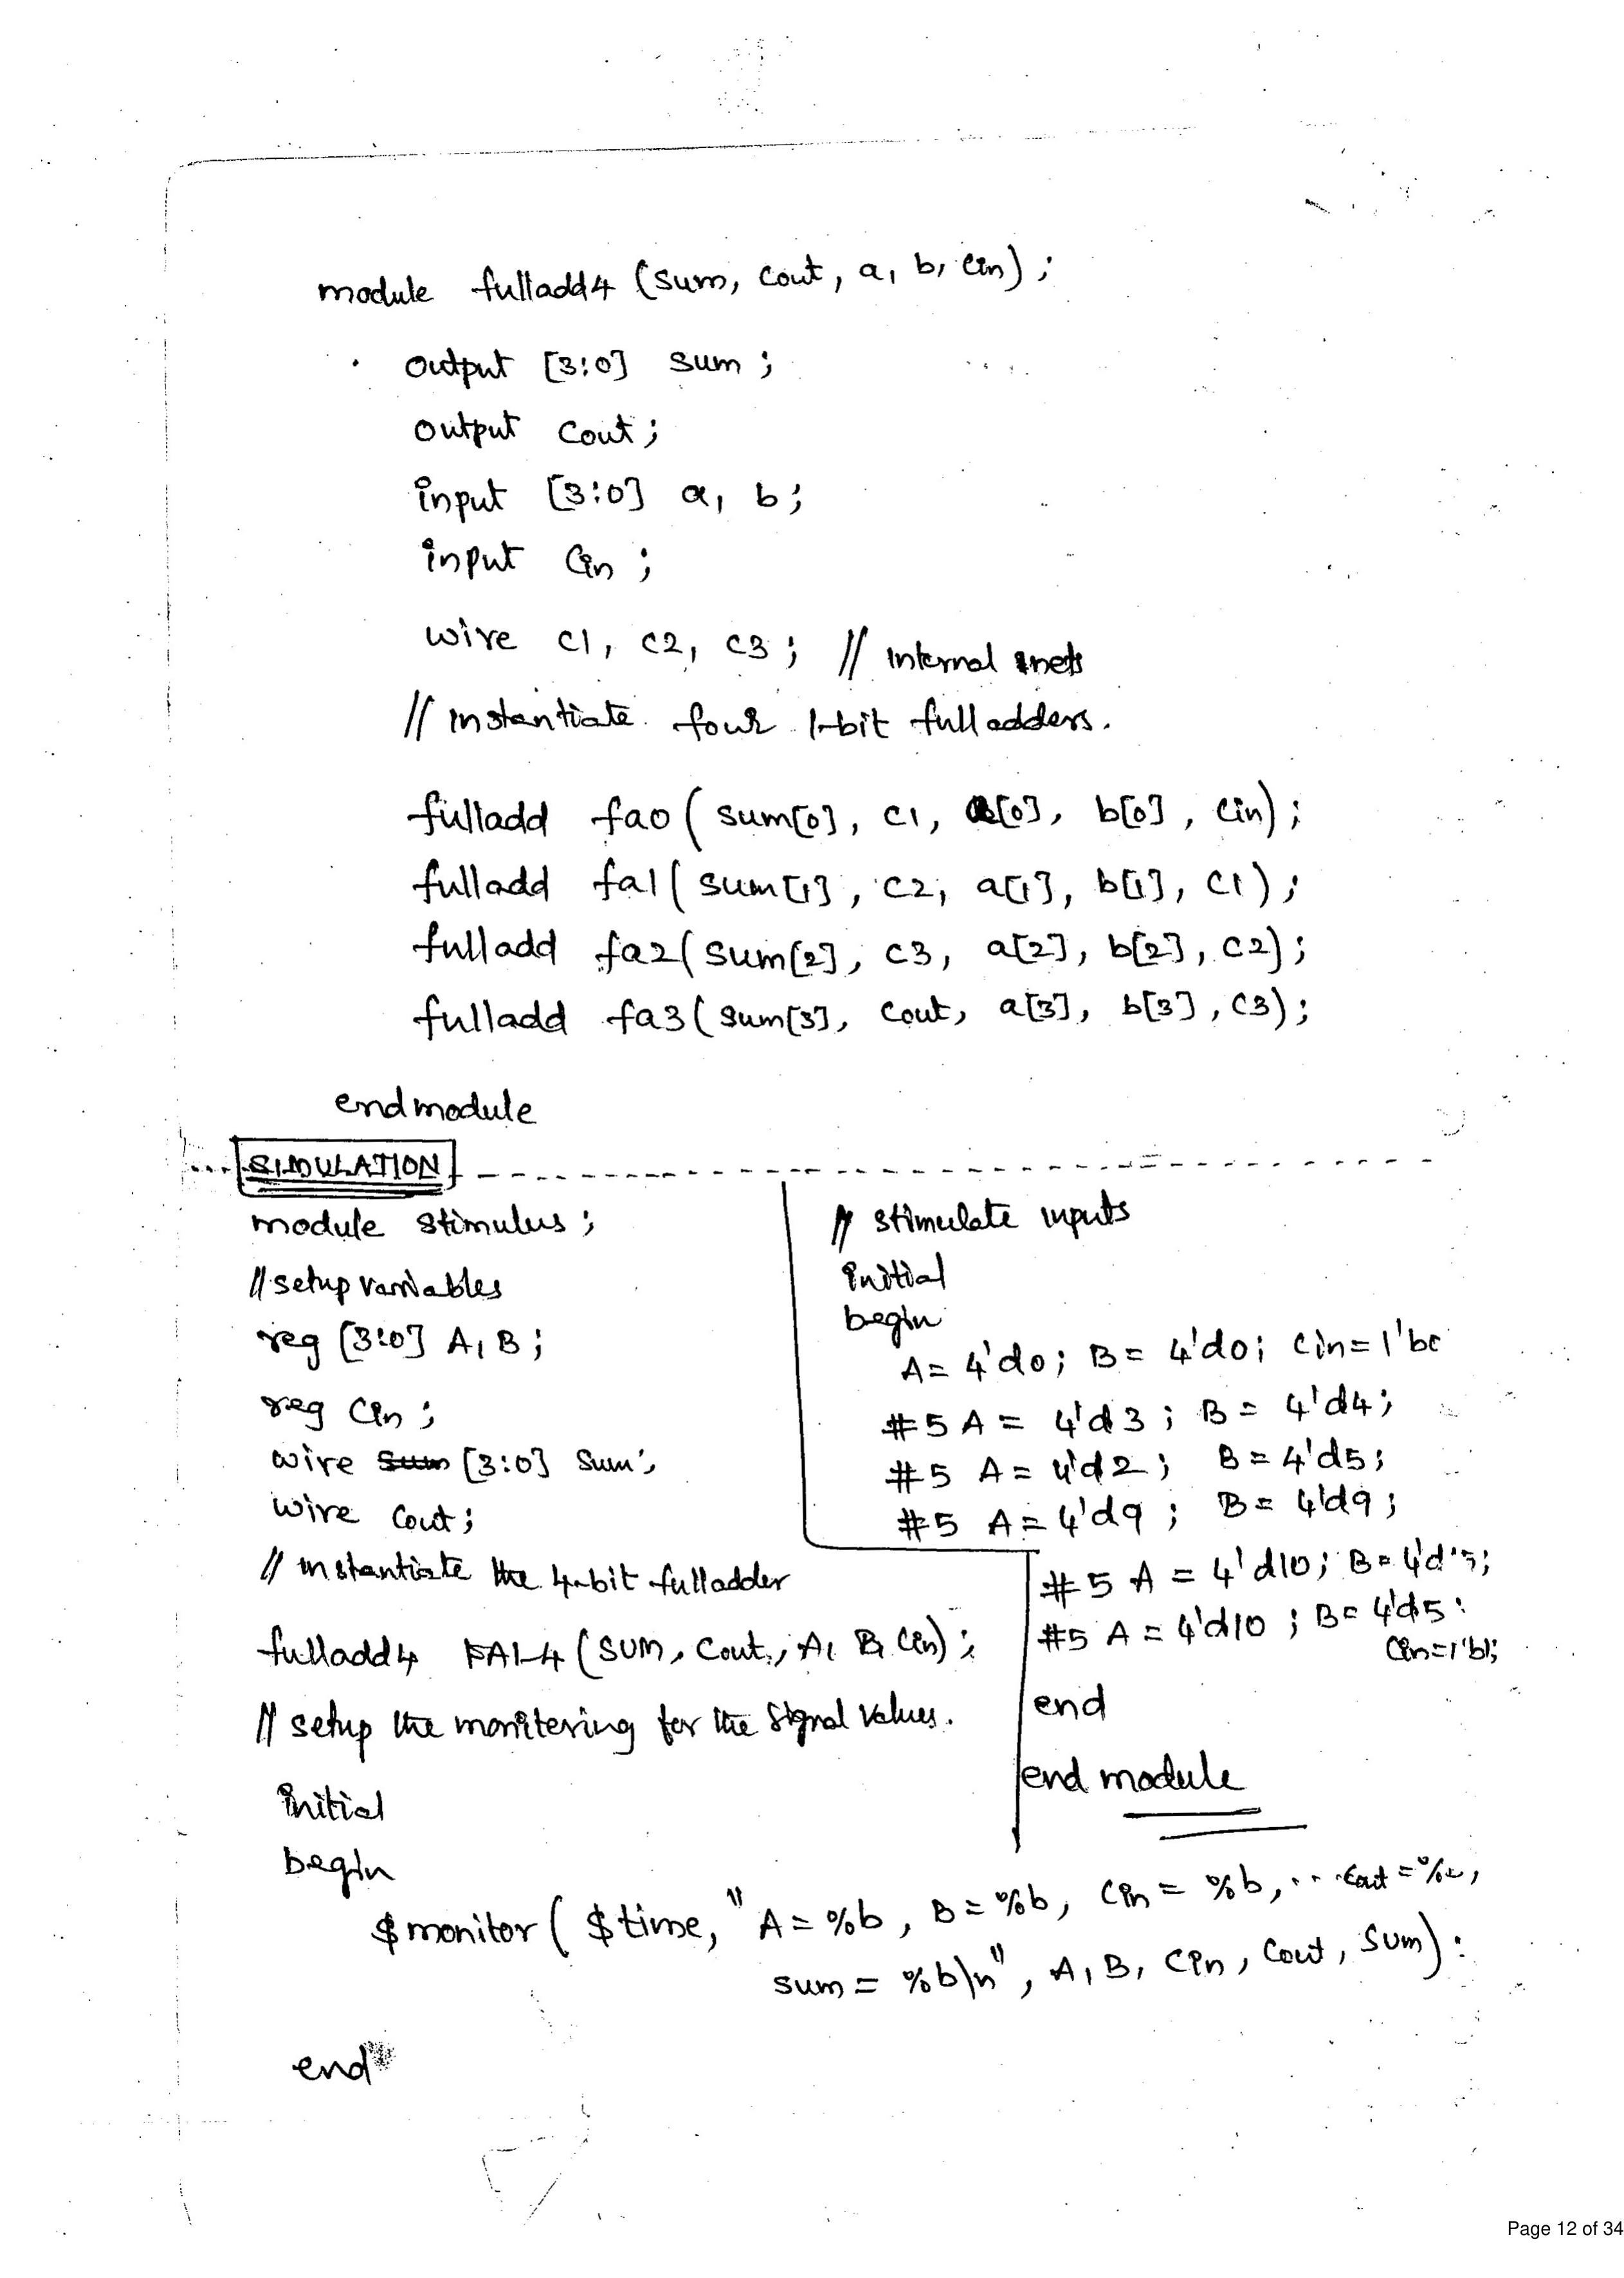 module fulladd4 (sum, cout, a, b, cin) ;
output [3:0] sum ;
output cout ;
input [3:0] a, b ;
input cin ;
wire c1, c2, c3 ; // internal nets
// instantiate four 1-bit full adders.
fulladd fa0 ( sum[0], c1, a[0], b[0] , cin) ;
fulladd fa1 ( sum[1] , c2, a[1], b[1], c1 ) ;
fulladd fa2( sum[2] , c3, a[2], b[2] , c2) ;
fulladd fa3 ( sum[3], cout, a[3], b[3] , c3) ;
endmodule
SIMULATION
module stimulus ;
// setup variables
reg [3:0] A, B ;
reg Cin ;
wire [3:0] sum ;
wire Cout ;
// instantiate the 4-bit fulladder
fulladd4 FA1-4 ( SUM, Cout, A, B, Cin) ;
// setup the monitering for the signal values.
initial
begin
$monitor ( $time, " A = %b , B = %b, Cin = %b, ... Cout = ,
sum = %b\n" , A, B, Cin , Cout , Sum) :
end
// stimulate inputs
initial
begin
A = 4'd0 ; B = 4'd0 ; Cin =
#5 A = 4'd3 ; B = 4'd4 ;
#5 A = 4'd2 ; B = 4'd5 ;
#5 A = 4'd9 ; B = 4'd9 ;
#5 A = 4'd10 ; B =
#5 A = 4'd10 ; B = 4'd5 :
Cin=1'b1;
end
end module
Page 12 of 34